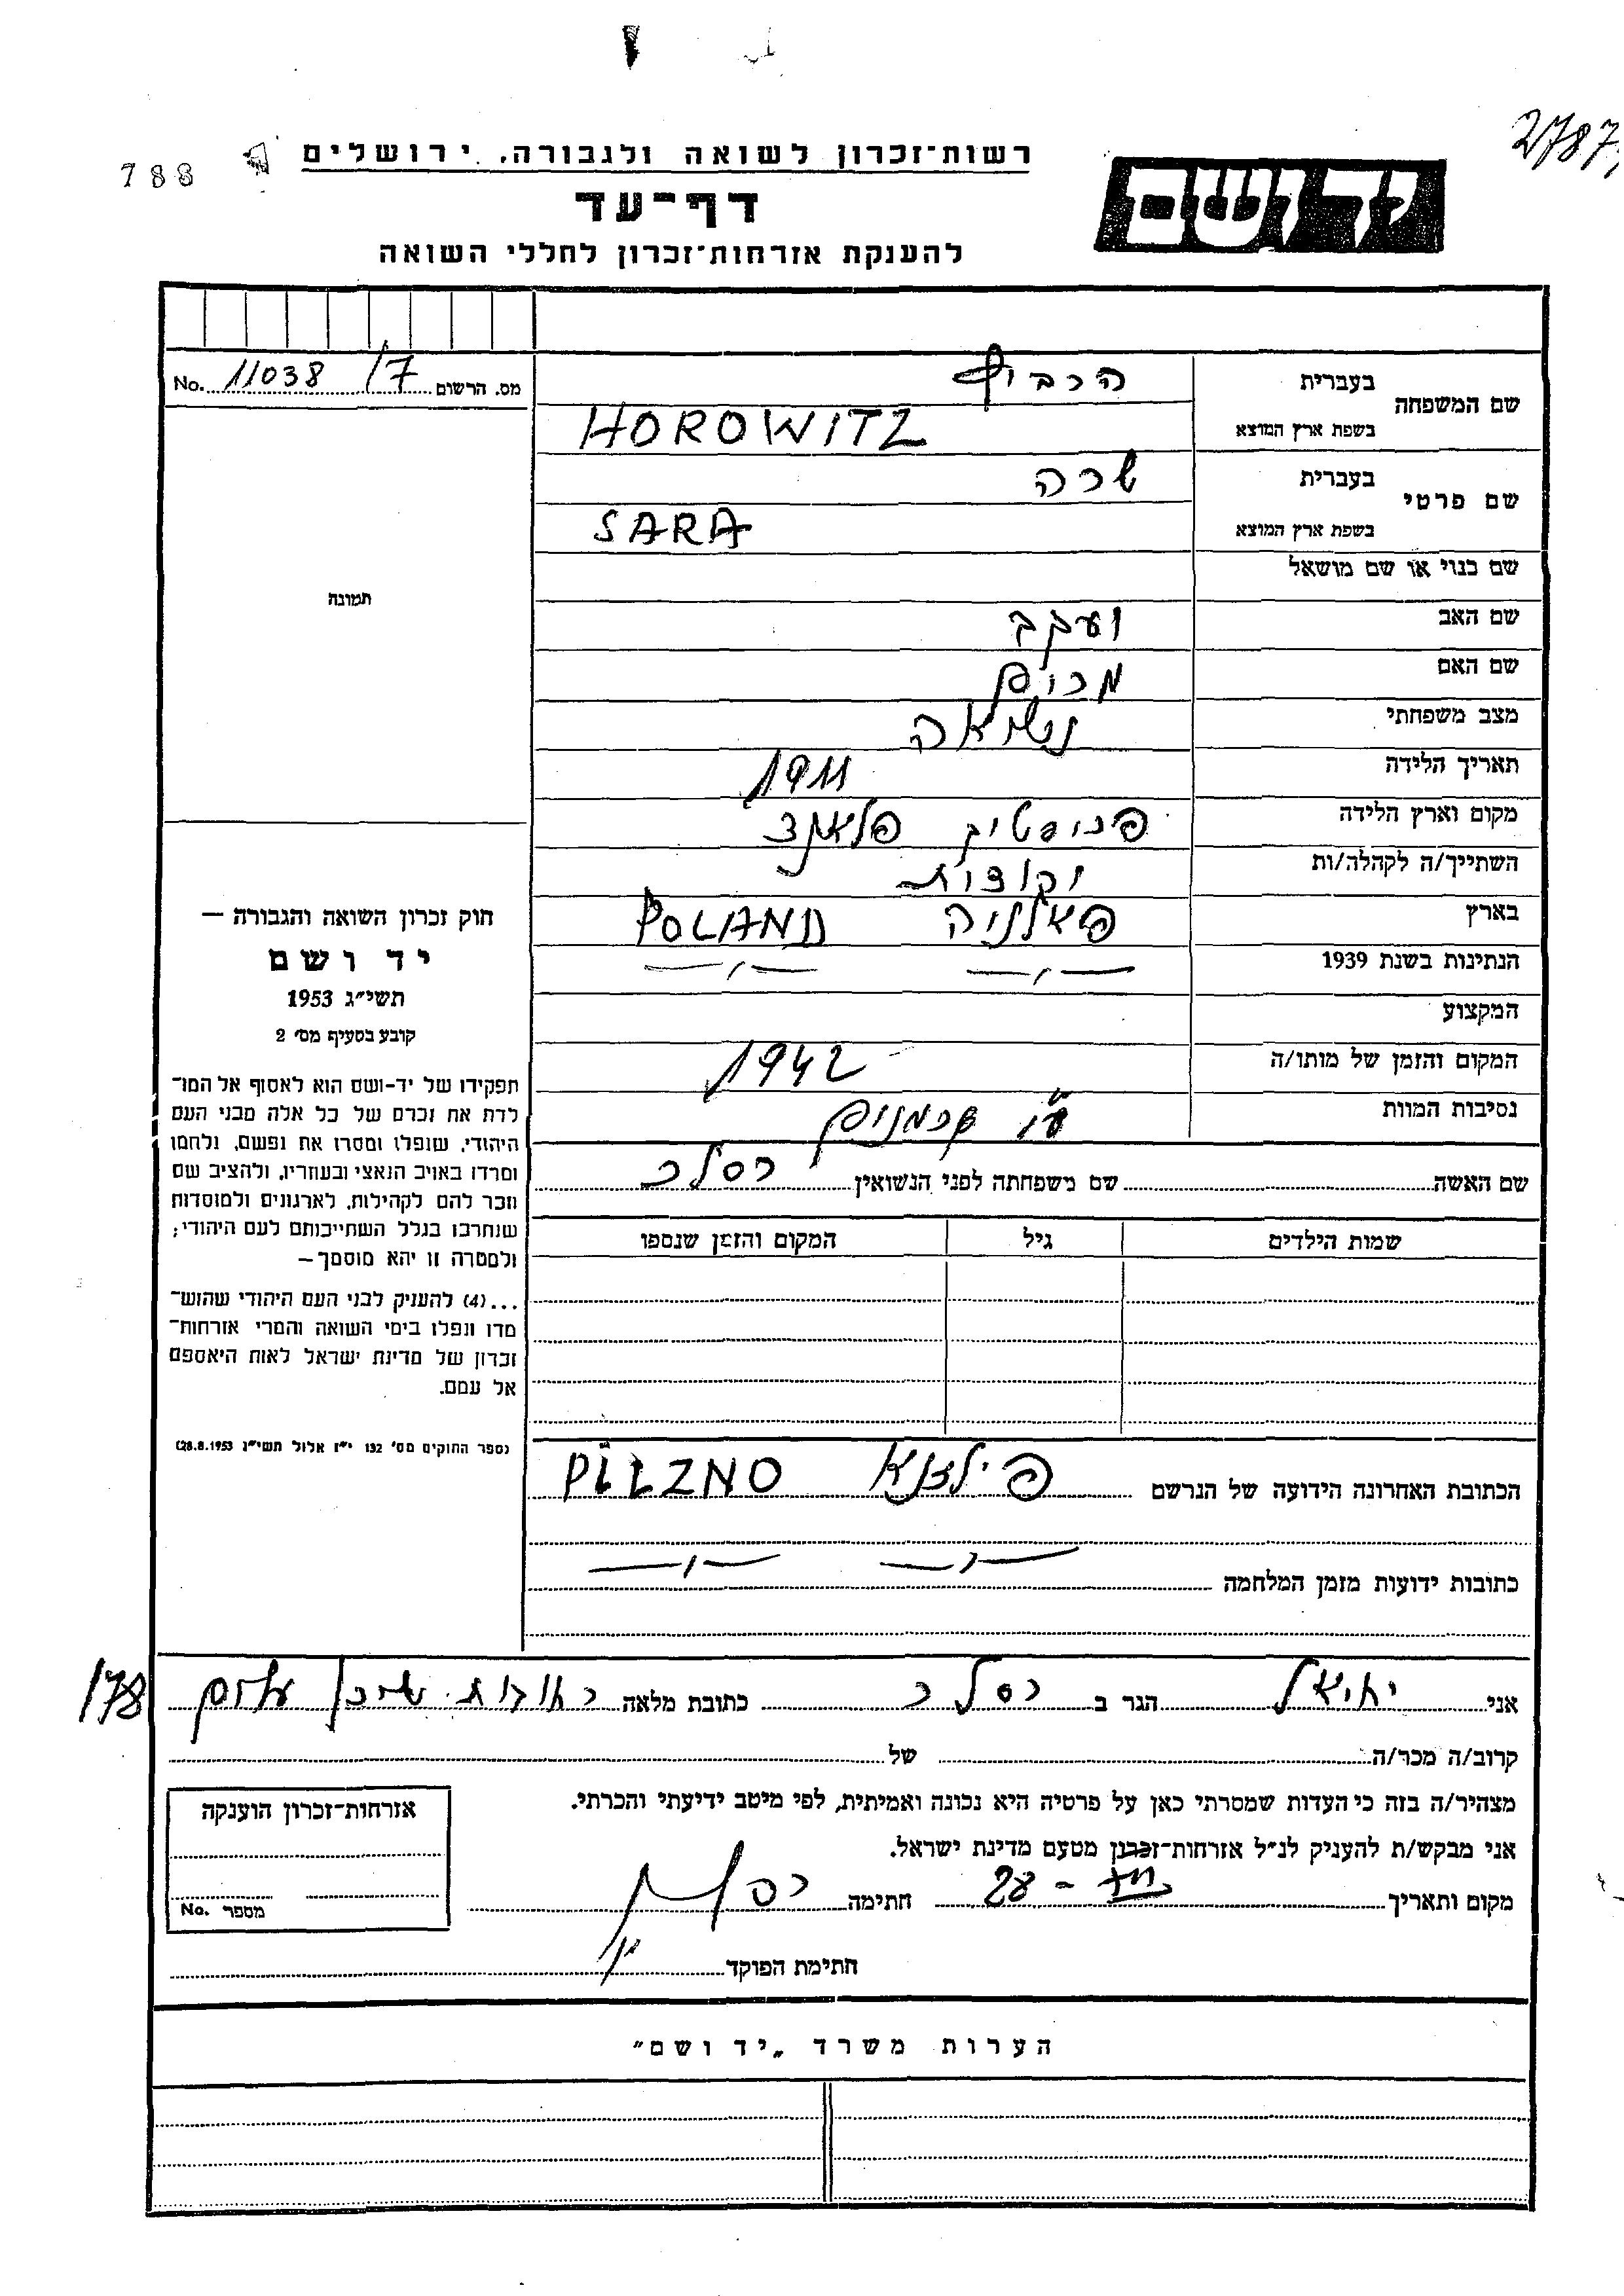 2787
788
רשות־זכרון לשואה ולגבורה, ירושלים
יד ושם
דף־עד
להענקת אזרחות־זכרון לחללי השואה
מס. הרשום 7/ 11038 No.
שם המשפחה
בעברית
בשפת ארץ המוצא HOROWITZ
שם פרטי
בעברית שרה
בשפת ארץ המוצא SARA
תמונה
שם כנוי או שם מושאל
שם האב יעקב
שם האם מרים
מצב משפחתי נשואה
תאריך הלידה 1911
מקום וארץ הלידה
השתייך/ה לקהלה/ות
בארץ פאלניה POLAND
הנתינות בשנת 1939 —,,— —,,—
המקצוע
המקום והזמן של מותו/ה 1942
נסיבות המוות ע"י גרמנים
שם האשה שם משפחתה לפני הנשואין רסלר
שמות הילדים גיל המקום והזמן שנספו
חוק זכרון השואה והגבורה —
יד ושם
תשי״ג 1953
קובע בסעיף מס׳ 2
תפקידו של יד-ושם הוא לאסוף אל המו־
לדת את זכרם של כל אלה מבני העם
היהודי, שנפלו ומסרו את נפשם, נלחמו
ומרדו באויב הנאצי ובעוזריו, ולהציב שם
וזכר להם לקהילות, לארגונים ולמוסדות
שנחרבו בגלל השתייכותם לעם היהודי;
ולמטרה זו יהא מוסמך —
...(4) להעניק לבני העם היהודי שהוש־
מדו ונפלו בימי השואה והמרי אזרחות־
זכרון של מדינת ישראל לאות היאספם
אל עמם.
(ספר החוקים מס׳ 132 י״ז אלול תשי״ג 28.8.1953)
הכתובת האחרונה הידועה של הנרשם פילזנא PILZNO
כתובות ידועות מזמן המלחמה —,,— —,,—
178
אני יחיאל הגר ב רסלר כתובת מלאה
קרוב/ה מכר/ה של
מצהיר/ה בזה כי העדות שמסרתי כאן על פרטיה היא נכונה ואמיתית, לפי מיטב ידיעתי והכרתי.
אני מבקש/ת להעניק לנ״ל אזרחות־זכרון מטעם מדינת ישראל.
מקום ותאריך חתימה
חתימת הפוקד
אזרחות־זכרון הוענקה
מספר No.
הערות משרד „יד ושם״